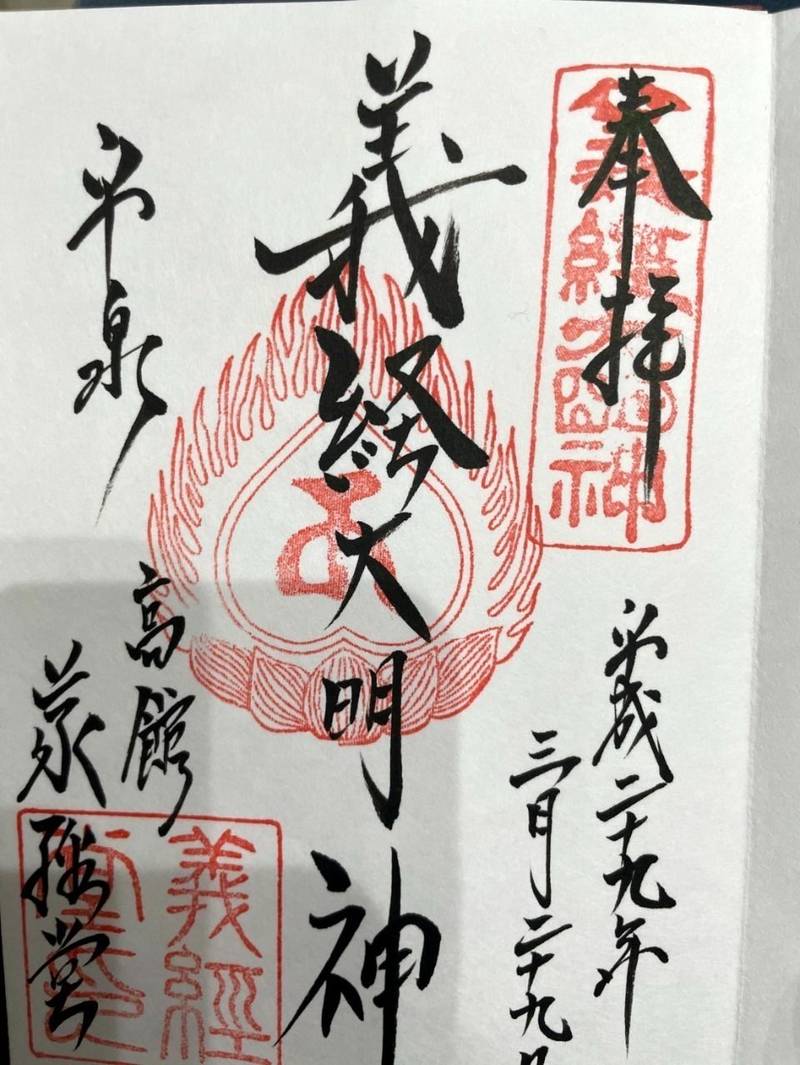 奉拝
義經大明神
平成二十九年
三月二十九日
義経大明神
平泉
高館
義経堂
義經